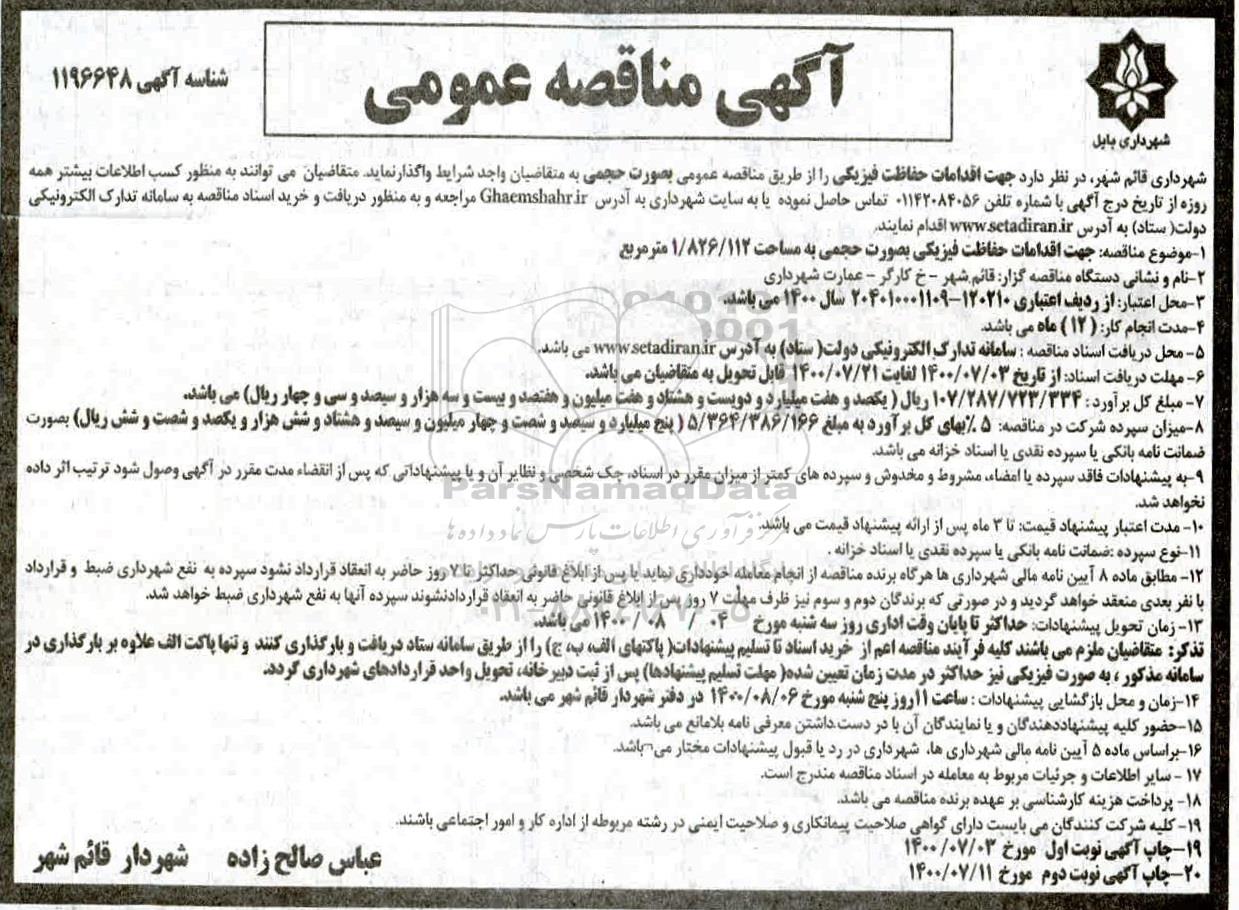 آگهی مناقصه عمومی
شناسه آگهی ۱۱۹۶۶۴۸
شهرداری بابل
شهرداری قائم شهر، در نظر دارد جهت اقدامات حفاظت فیزیکی را از طریق مناقصه عمومی بصورت حجمی به متقاضیان واجد شرایط واگذارنماید. متقاضیان می توانند به منظور کسب اطلاعات بیشتر همه
روزه از تاریخ درج آگهی با شماره تلفن ۰۱۱۴۲۰۸۴۰۵۶ تماس حاصل نموده یا به سایت شهرداری به آدرس Ghaemshahr.ir مراجعه و به منظور دریافت و خرید اسناد مناقصه به سامانه تدارک الکترونیکی
دولت( ستاد) به آدرس www.setadiran.ir اقدام نمایند.
۱-موضوع مناقصه: جهت اقدامات حفاظت فیزیکی بصورت حجمی به مساحت ۱/۸۲۶/۱۱۲ مترمربع
۲-نام و نشانی دستگاه مناقصه گزار: قائم شهر - خ کارگر - عمارت شهرداری
۳-محل اعتبار: از ردیف اعتباری ۱۲۰۲۱۰-۲۰۴۰۱۰۰۰۱۱۰۹ سال ۱۴۰۰ می باشد.
۴-مدت انجام کار: ( ۱۲ ) ماه می باشد.
۵- محل دریافت اسناد مناقصه : سامانه تدارک الکترونیکی دولت( ستاد) به آدرس www.setadiran.ir می باشد.
۶- مهلت دریافت اسناد: از تاریخ ۱۴۰۰/۰۷/۰۳ لغایت ۱۴۰۰/۰۷/۲۱ قابل تحویل به متقاضیان می باشد.
۷- مبلغ کل برآورد : ۱۰۷/۲۸۷/۷۲۳/۳۳۴ ریال ( یکصد و هفت میلیارد و دویست و هشتاد و هفت میلیون و هفتصد و بیست و سه هزار و سیصد و سی و چهار ریال) می باشد.
۸-میزان سپرده شرکت در مناقصه: ۵ ٪بهای کل برآورد به مبلغ ۵/۳۶۴/۳۸۶/۱۶۶ ( پنج میلیارد و سیصد و شصت و چهار میلیون و سیصد و هشتاد و شش هزار و یکصد و شصت و شش ریال) بصورت
ضمانت نامه بانکی یا سپرده نقدی یا اسناد خزانه می باشد.
۹-به پیشنهادات فاقد سپرده یا امضاء، مشروط و مخدوش و سپرده های کمتر از میزان مقرر در اسناد، چک شخصی و نظایر آن و یا پیشنهاداتی که پس از انقضاء مدت مقرر در آگهی وصول شود ترتیب اثر داده
نخواهد شد.
۱۰- مدت اعتبار پیشنهاد قیمت: تا ۳ ماه پس از ارائه پیشنهاد قیمت می باشد.
۱۱-نوع سپرده :ضمانت نامه بانکی یا سپرده نقدی یا اسناد خزانه .
۱۲- مطابق ماده ۸ آیین نامه مالی شهرداری ها هرگاه برنده مناقصه از انجام معامله خودداری نماید یا پس از ابلاغ قانونی حداکثر تا ۷ روز حاضر به انعقاد قرارداد نشود سپرده به نفع شهرداری ضبط و قرارداد
با نفر بعدی منعقد خواهد گردید و در صورتی که برندگان دوم و سوم نیز ظرف مهلت ۷ روز پس از ابلاغ قانونی حاضر به انعقاد قراردادنشوند سپرده آنها به نفع شهرداری ضبط خواهد شد.
۱۳- زمان تحویل پیشنهادات: حداکثر تا پایان وقت اداری روز سه شنبه مورخ ۰۴ / ۰۸ / ۱۴۰۰ می باشد.
تذکر: متقاضیان ملزم می باشند کلیه فرآیند مناقصه اعم از خرید اسناد تا تسلیم پیشنهادات( پاکتهای الف، ب، ج) را از طریق سامانه ستاد دریافت و بارگذاری کنند و تنها پاکت الف علاوه بر بارگذاری در
سامانه مذکور ، به صورت فیزیکی نیز حداکثر در مدت زمان تعیین شده( مهلت تسلیم پیشنهادها) پس از ثبت دبیرخانه، تحویل واحد قراردادهای شهرداری گردد.
۱۴-زمان و محل بازگشایی پیشنهادات : ساعت ۱۱روز پنج شنبه مورخ ۱۴۰۰/۰۸/۰۶ در دفتر شهردار قائم شهر می باشد.
۱۵-حضور کلیه پیشنهاددهندگان و یا نمایندگان آن با در دست داشتن معرفی نامه بلامانع می باشد.
۱۶-براساس ماده ۵ آیین نامه مالی شهرداری ها، شهرداری در رد یا قبول پیشنهادات مختار می باشد.
۱۷ - سایر اطلاعات و جزئیات مربوط به معامله در اسناد مناقصه مندرج است.
۱۸- پرداخت هزینه کارشناسی بر عهده برنده مناقصه می باشد.
۱۹- کلیه شرکت کنندگان می بایست دارای گواهی صلاحیت پیمانکاری و صلاحیت ایمنی در رشته مربوطه از اداره کار و امور اجتماعی باشند.
۱۹-چاپ آگهی نوبت اول مورخ ۱۴۰۰/۰۷/۰۳
۲۰-چاپ آگهی نوبت دوم مورخ ۱۴۰۰/۰۷/۱۱
عباس صالح زاده شهردار قائم شهر
ParsNamadData
مرکز فرآوری اطلاعات پارس نماد داده ها